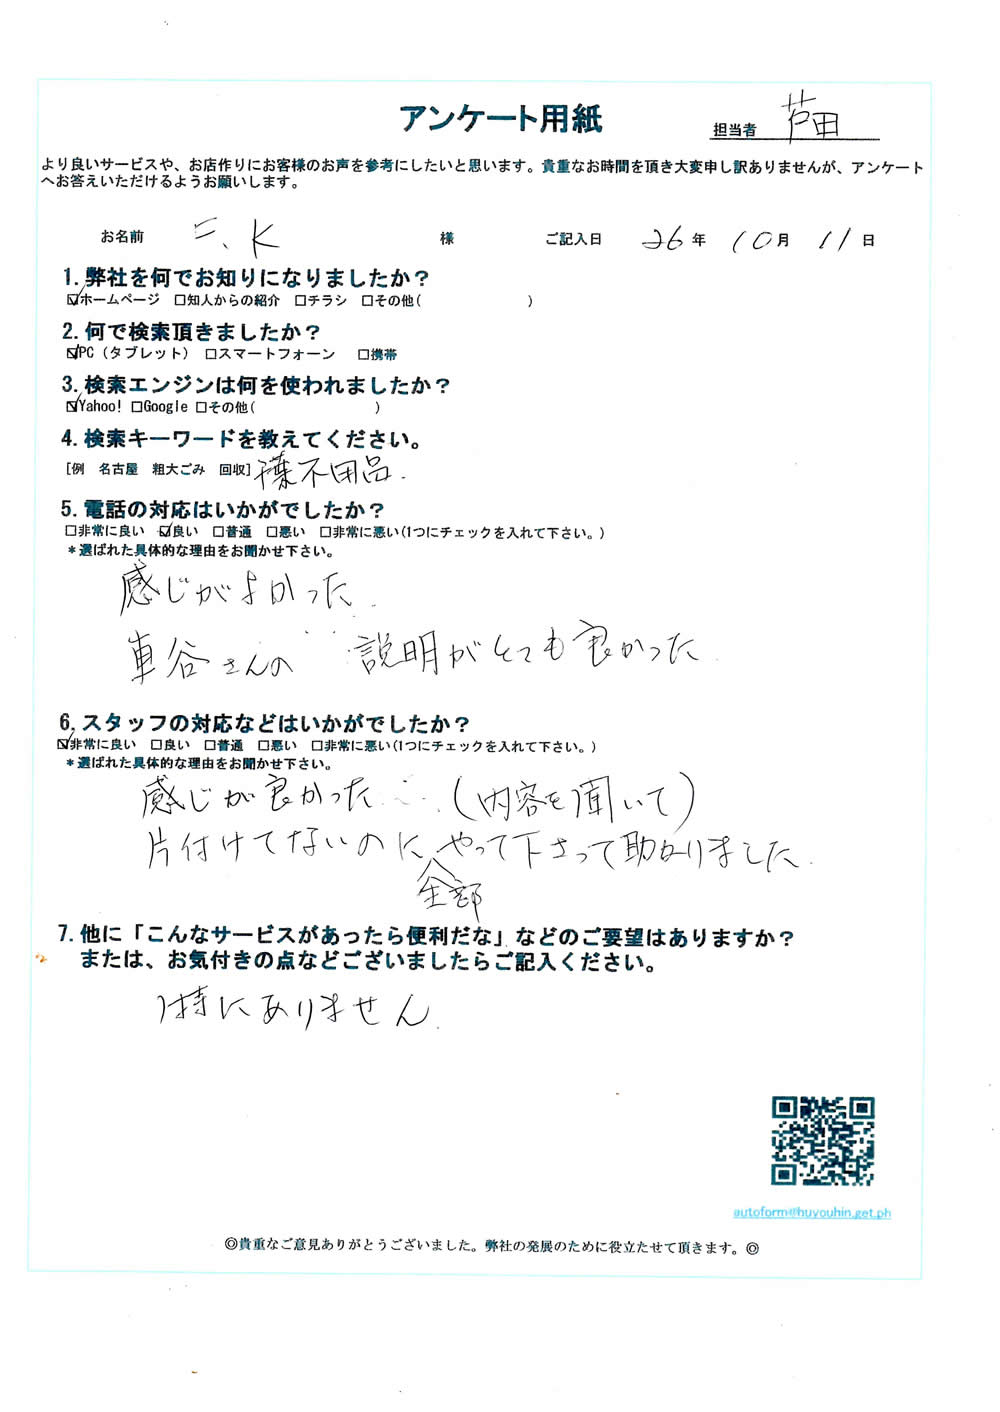 アンケート用紙
担当者 芦田
より良いサービスや、お店作りにお客様のお声を参考にしたいと思います。貴重なお時間を頂き大変申し訳ありませんが、アンケート
へお答えいただけるようお願いします。
お名前 F.K 様 ご記入日 26年 10月 11日
1.弊社を何でお知りになりましたか？
☑ホームページ □知人からの紹介 □チラシ □その他( )
2.何で検索頂きましたか？
☑PC（タブレット） □スマートフォーン □携帯
3.検索エンジンは何を使われましたか？
☑Yahoo! □Google □その他( )
4.検索キーワードを教えてください。
[例 名古屋 粗大ごみ 回収] 不用品.
5.電話の対応はいかがでしたか？
□非常に良い ☑良い □普通 □悪い □非常に悪い(1つにチェックを入れて下さい。)
＊選ばれた具体的な理由をお聞かせ下さい。
感じがよかった.
車谷さんの 説明がとても良かった.
6.スタッフの対応などはいかがでしたか？
☑非常に良い □良い □普通 □悪い □非常に悪い(1つにチェックを入れて下さい。)
＊選ばれた具体的な理由をお聞かせ下さい。
感じが良かった (内容を聞いて)
片付けてないのにやって下さって助かりました.
全部
7.他に「こんなサービスがあったら便利だな」などのご要望はありますか？
または、お気付きの点などございましたらご記入ください。
特にありません.
autoform@huyouhin.get.ph
◎貴重なご意見ありがとうございました。弊社の発展のために役立たせて頂きます。◎